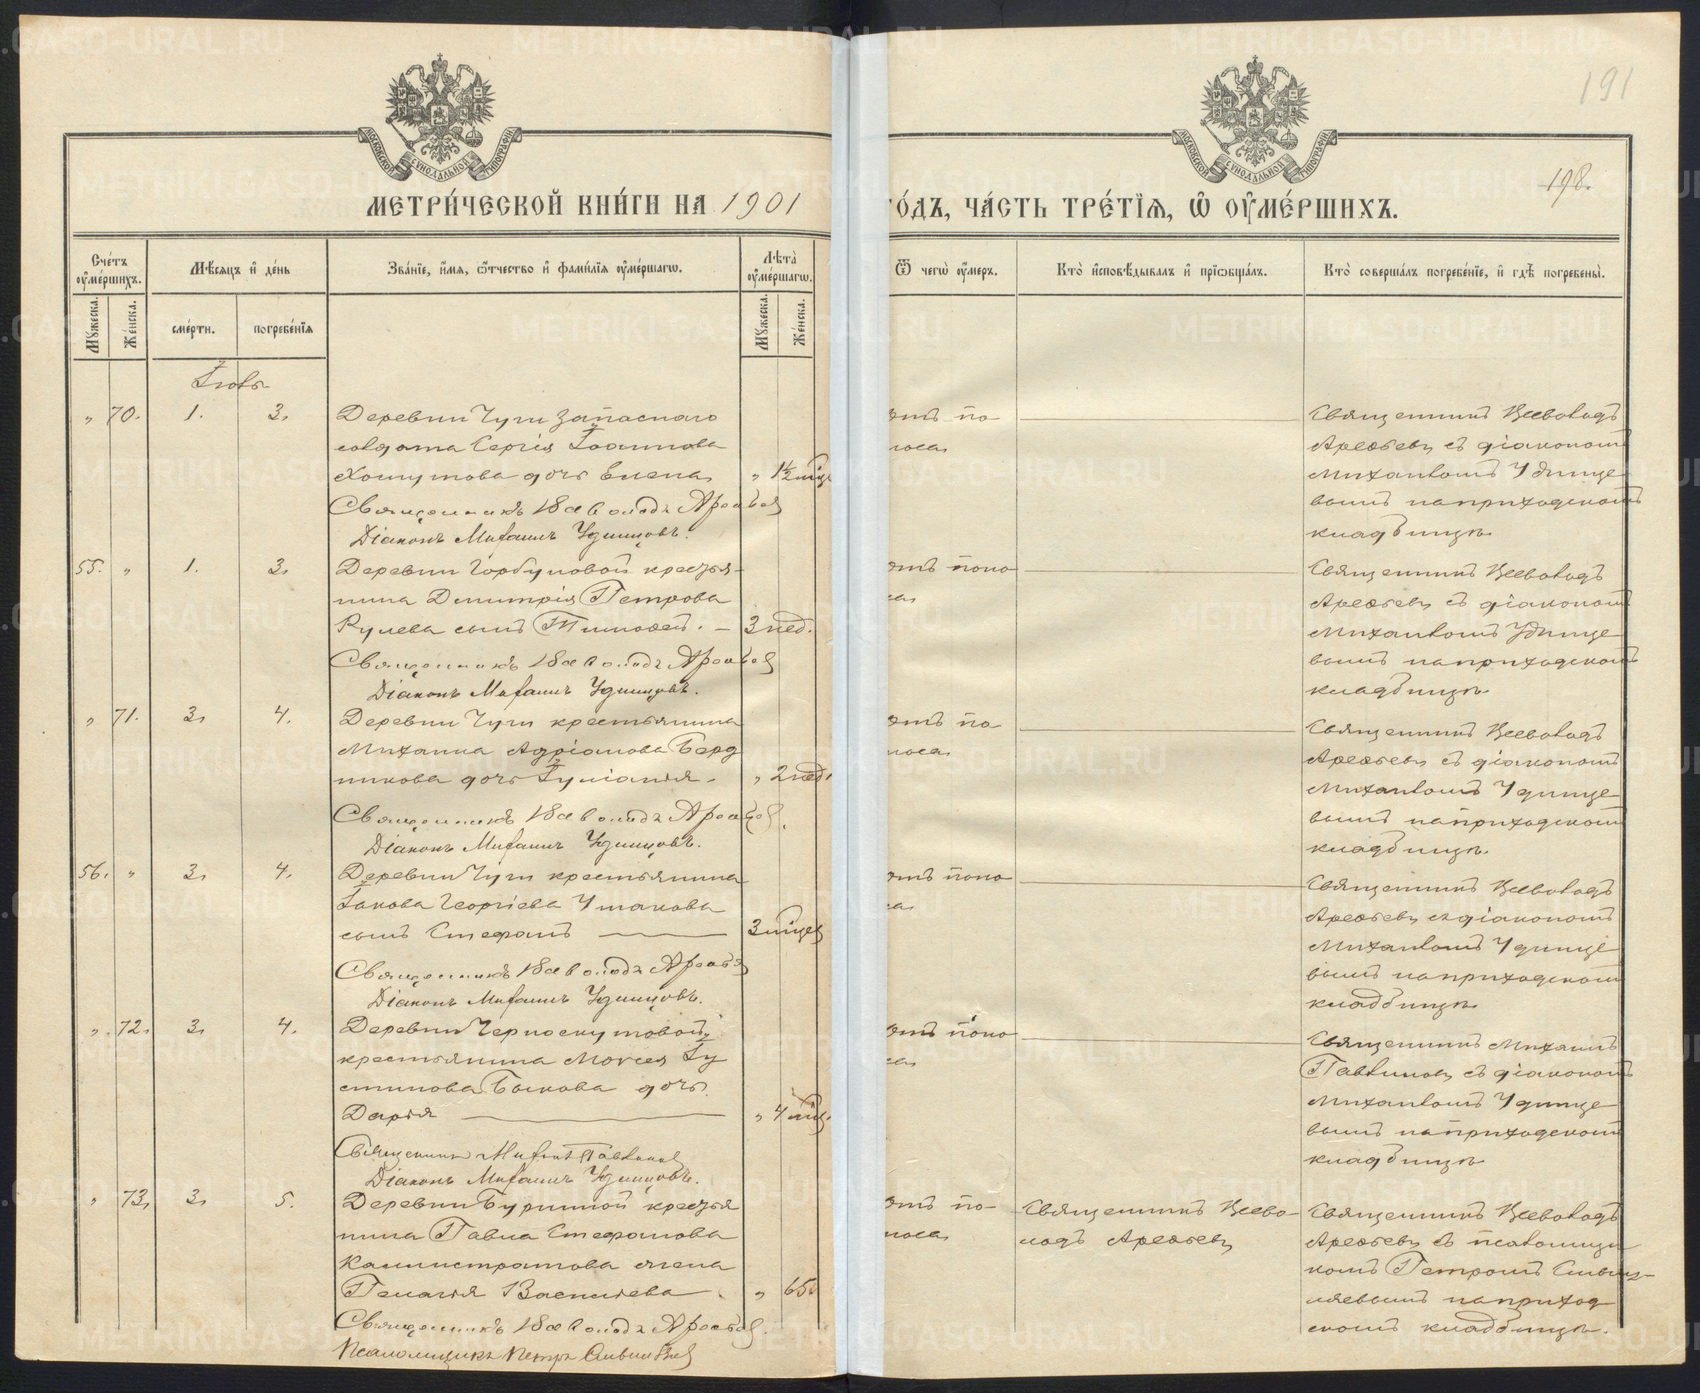 191
198.
МЕТРИ́ЧЕСКОЙ КНИ́ГИ НА 1901
ГО́ДЪ, ЧА́СТЬ ТРЕ́ТЇѦ, Ѡ ОУ҆МЕ́РШИХЪ.
МОСКОВСКОЙ СѴНОДАЛЬНОЙ ТИПОГРАФІИ
МОСКОВСКОЙ СѴНОДАЛЬНОЙ ТИПОГРАФІИ
Сче́тъ оу҆ме́ршихъ.
Мꙋ́жеска.
Же́нска.
Мѣ́сѧцъ и҆ де́нь
сме́рти.
погребе́нїѧ
Зва́нїе, и҆́мѧ, ѻ҆́тчество и҆ фами́лїѧ оу҆ме́ршагѡ.
Лѣ́та оу҆ме́ршагѡ.
Мꙋ́жеска.
Же́нска.
Ѿ чегѡ̀ оу҆́меръ.
Кто̀ и҆сповѣ́дывалъ и҆ прїѡбща́лъ.
Кто̀ соверша́лъ погребе́нїе, и҆ гдѣ̀ погребены̀.
Іюль
" 70. 1. 3.
Деревни Чуги запаснаго
солдата Сергія Іоаннова
Хомутова дочь Елена " 1½ мѣс.
Священникъ Всеволодъ Арефьев
Діаконъ Михаилъ Удинцовъ.
отъ по-
носа
Священникъ Всеволодъ
Арефьевъ съ діакономъ
Михаиломъ Удинце
вымъ на приходскомъ
кладбищѣ
55. " 1. 3.
Деревни Горбуновой крестья-
нина Димитрія Петрова
Рулева сынъ Тимофей. 3 нед.
Священникъ Всеволодъ Арефьев
Діаконъ Михаилъ Удинцовъ.
отъ поно
са
Священникъ Всеволодъ
Арефьевъ съ діакономъ
Михаиломъ Удинце
вымъ на приходскомъ
кладбищѣ
" 71. 3. 4.
Деревни Чуги крестьянина
Михаила Адріанова Берд
никова дочь Іуліанія. " 2 нед.
Священникъ Всеволодъ Арефьев.
Діаконъ Михаилъ Удинцовъ.
отъ по
носа
Священникъ Всеволодъ
Арефьевъ съ діакономъ
Михаиломъ Удинце
вымъ на приходскомъ
кладбищѣ.
56. " 3. 4.
Деревни Чуги крестьянина
Іакова Георгіева Ушакова
сынъ Стефанъ 3 мѣсец
Священникъ Всеволодъ Арефьев
Діаконъ Михаилъ Удинцовъ.
отъ поно
са
Священникъ Всеволодъ
Арефьевъ съ діакономъ
Михаиломъ Удинце
вымъ на приходскомъ
кладбищѣ
". 72. 3. 4.
Деревни Черноскутовой
крестьянина Моисея Іу
стинова Быкова дочь
Дарія " 4 мѣс.
Священникъ Михаилъ Павлинов
Діаконъ Михаилъ Удинцовъ.
отъ поно
са
Священникъ Михаилъ
Павлиновъ съ діакономъ
Михаиломъ Удинце
вымъ на приходскомъ
кладбищѣ
" 73. 3. 5.
Деревни Буриной крестья
нина Павла Стефанова
Калистратова жена
Пелагія Васильева. " 65.
Священникъ Всеволодъ Арефьев.
Псаломщикъ Петръ
отъ по-
носа
Священникъ Всево-
лодъ Арефьевъ
Священникъ Всеволодъ
Арефьевъ съ псаломщи
комъ Петромъ
на приход
скомъ кладбищѣ.
METRIKI.GASO-URAL.RU